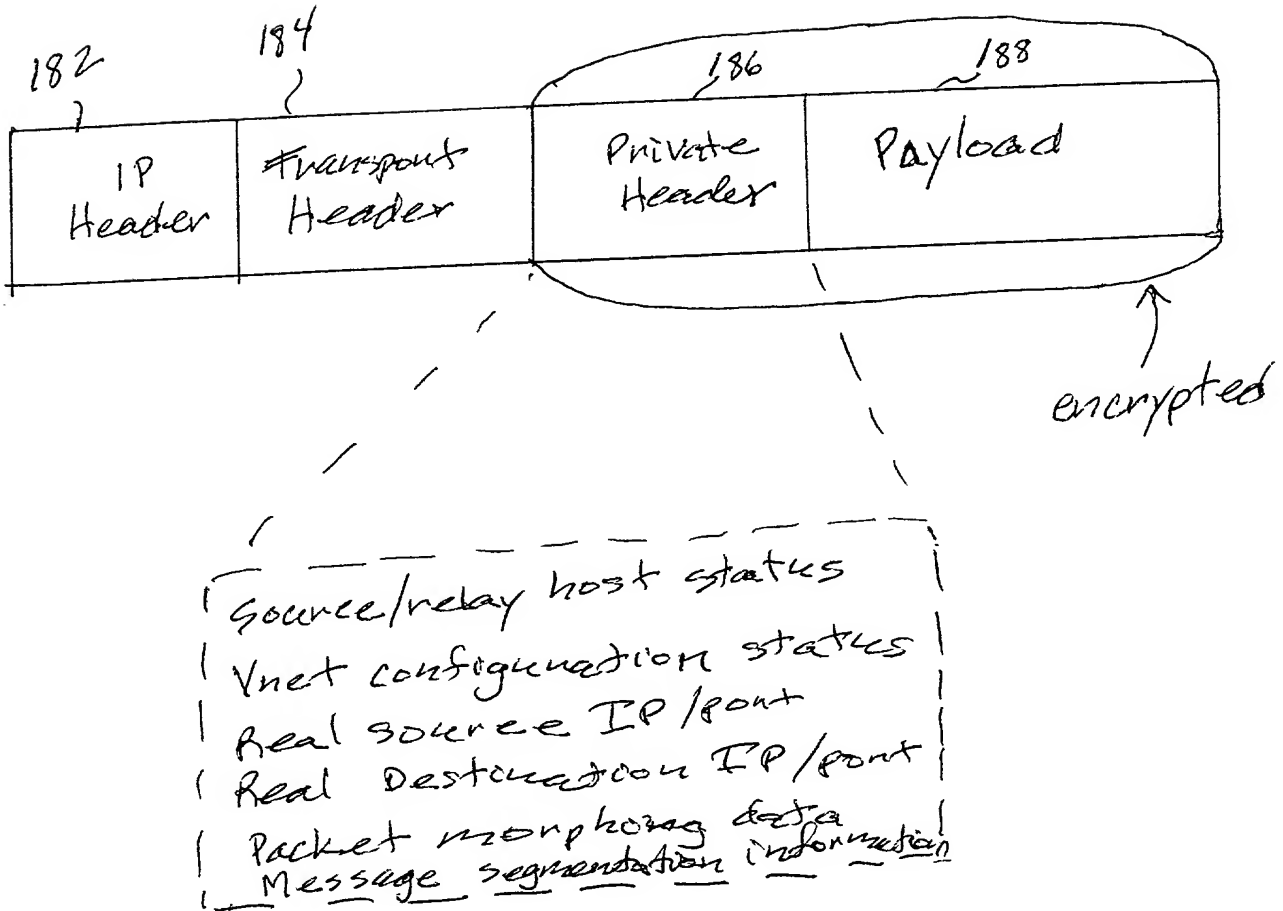 182
184
186
188
IP
Header
Transport
Header
Private
Header
Payload
encrypted
Source/relay host status
Vnet configuration status
Real source IP/port
Real Destination IP/port
Packet morphing data
Message segmentation information